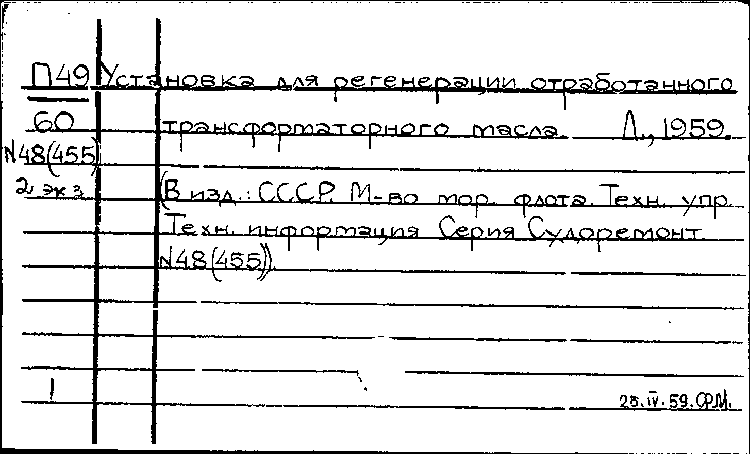 П49 Установка для регенерации отработанного
60 трансформаторного масла. Л., 1959.
N48(455)
2 экз. (В изд.: СССР. М-во мор. флота. Техн. упр.
Техн. информация Серия Судоремонт.
N48(455)).
1
25.IV.59.ФМ.